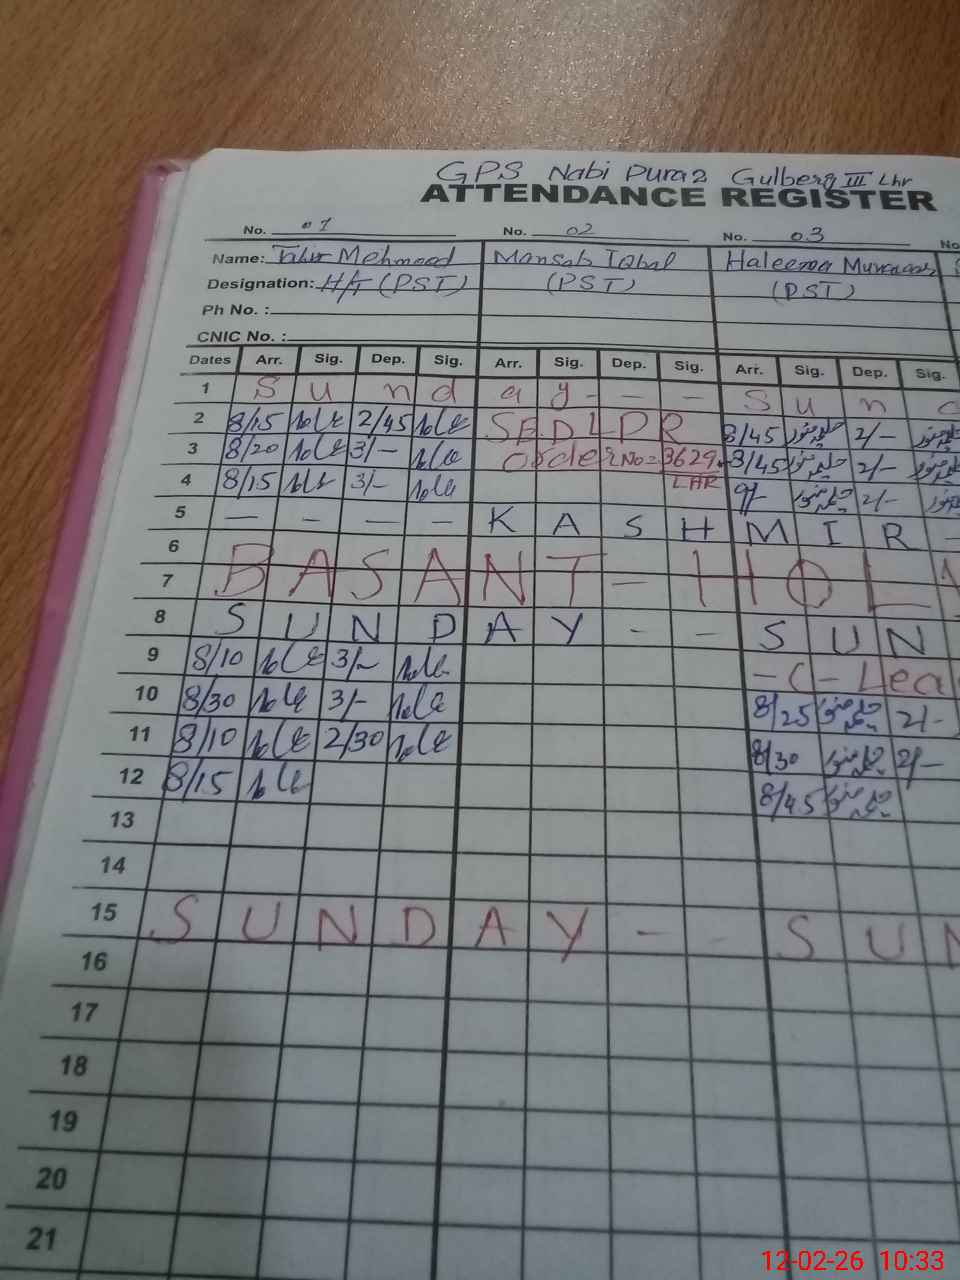 GPS Nabi Pura 2 Gulberg III Lhr
ATTENDANCE REGISTER
No. 01 No. 02 No. 03 No.
Name: Tahir Mehmood Mansab Iqbal Haleema
Designation: H/T (PST) (PST) (PST)
Ph No. :
CNIC No. :
Dates Arr. Sig. Dep. Sig. Arr. Sig. Dep. Sig. Arr. Sig. Dep. Sig.
1 S u n d a y - - - S u n
2 8/15 2/45 SED LDR 8/45 2/-
3 8/20 3/- Order No = 3629 8/45 2/-
4 8/15 3/- LHR 9/- 2/-
5 - - - - K A S H M I R -
6
7 B A S A N T - H O L
8 S U N D A Y - - S U N
9 8/10 3/- - C - Lea
10 8/30 3/- 8/25 2/-
11 8/10 2/30 8/30 2/-
12 8/15 8/45
13
14
15 S U N D A Y - - S U N
16
17
18
19
20
21
12-02-26 10:33